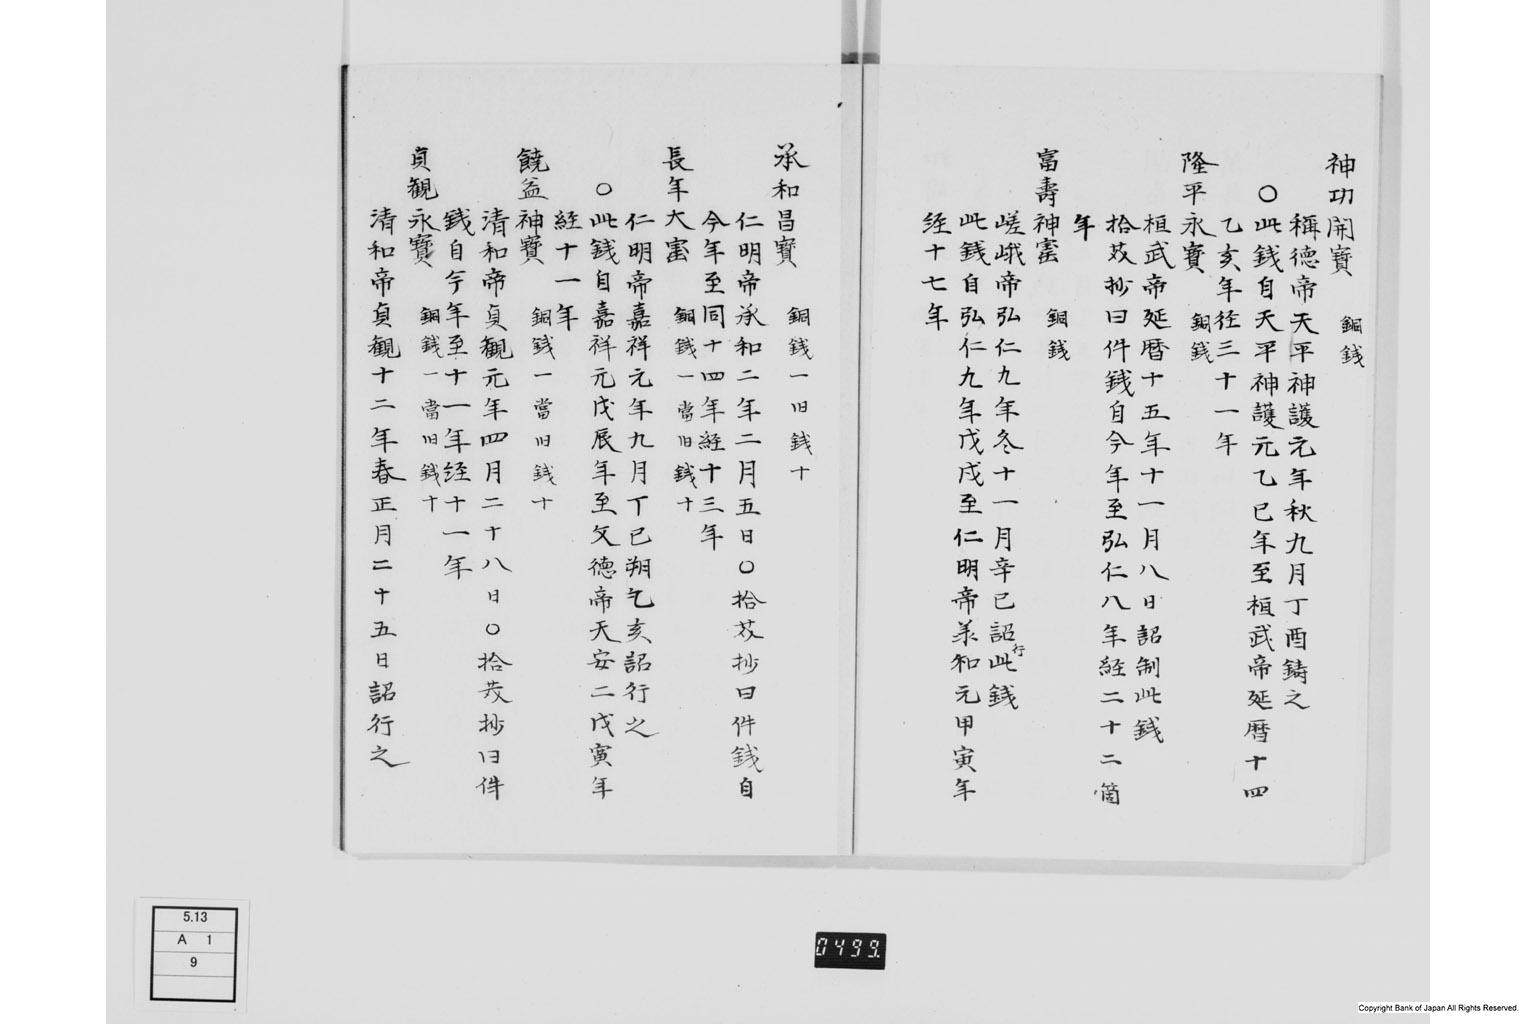 神功開寳　銅銭
稱德帝天平神護元年秋九月丁酉鋳之
〇此銭自天平神護元乙巳年至桓武帝延暦十四
乙亥年径三十一年
隆平永寳　銅銭
桓武帝延暦十五年十一月八日詔制此銭
拾芥抄曰件銭自今年至弘仁八年経二十二箇
年
富壽神寚　銅銭
嵯峨帝弘仁九年冬十一月辛巳詔行此銭
此銭自弘仁九年戊戌至仁明帝羕和元甲寅年
経十七年
承和昌寳　銅銭一旧銭十
仁明帝承和二年二月五日〇拾芥抄曰件銭自
今年至同十四年経十三年
長年大寚　銅銭一當旧銭十
仁明帝嘉祥元年九月丁巳朔乞亥詔行之
〇此銭自嘉祥元戊辰年至文徳帝天安二戊寅年
経十一年
饒益神寳　銅銭一當旧銭十
清和帝貞観元年四月二十八日〇拾芥抄曰件
銭自今年至十一年経十一年
貞観永寳　銅銭一當旧銭十
清和帝貞観十二年春正月二十五日詔行之
5.13
A 1
9
0499
Copyright Bank of Japan All Rights Reserved.